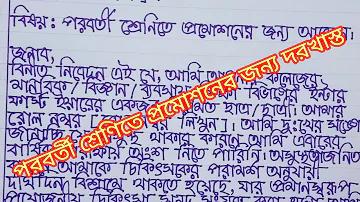 বিষয়: পরবর্তী শ্রেনিতে প্রমোশনের জন্য আবেদন।
জনাব,
বিনীত নিবেদন এই যে, আমি আপনার কলেজের
মানবিক/বিজ্ঞান/ব্যবসায় বিভাগের ইন্টার
ফার্স্ট ইয়ারের একজন ছাত্র/ছাত্রী। আমার
রোল নম্বর লিখুন]। আমি দুঃখের সাথে
জানাচ্ছি থাকার কারনে আমি এবারের
বার্ষিক পরীক্ষায় অংশ নিতে পারিনি। অসুস্থতাজনিত
আমাকে চিকিৎসকের পরামর্শ অনুযায়ী
দীর্ঘদিন বিশ্রামে থাকতে হয়েছে, যার প্রমানস্বরূপ
পরবর্তী শ্রেণিতে প্রমোশনের জন্য দরখাস্ত